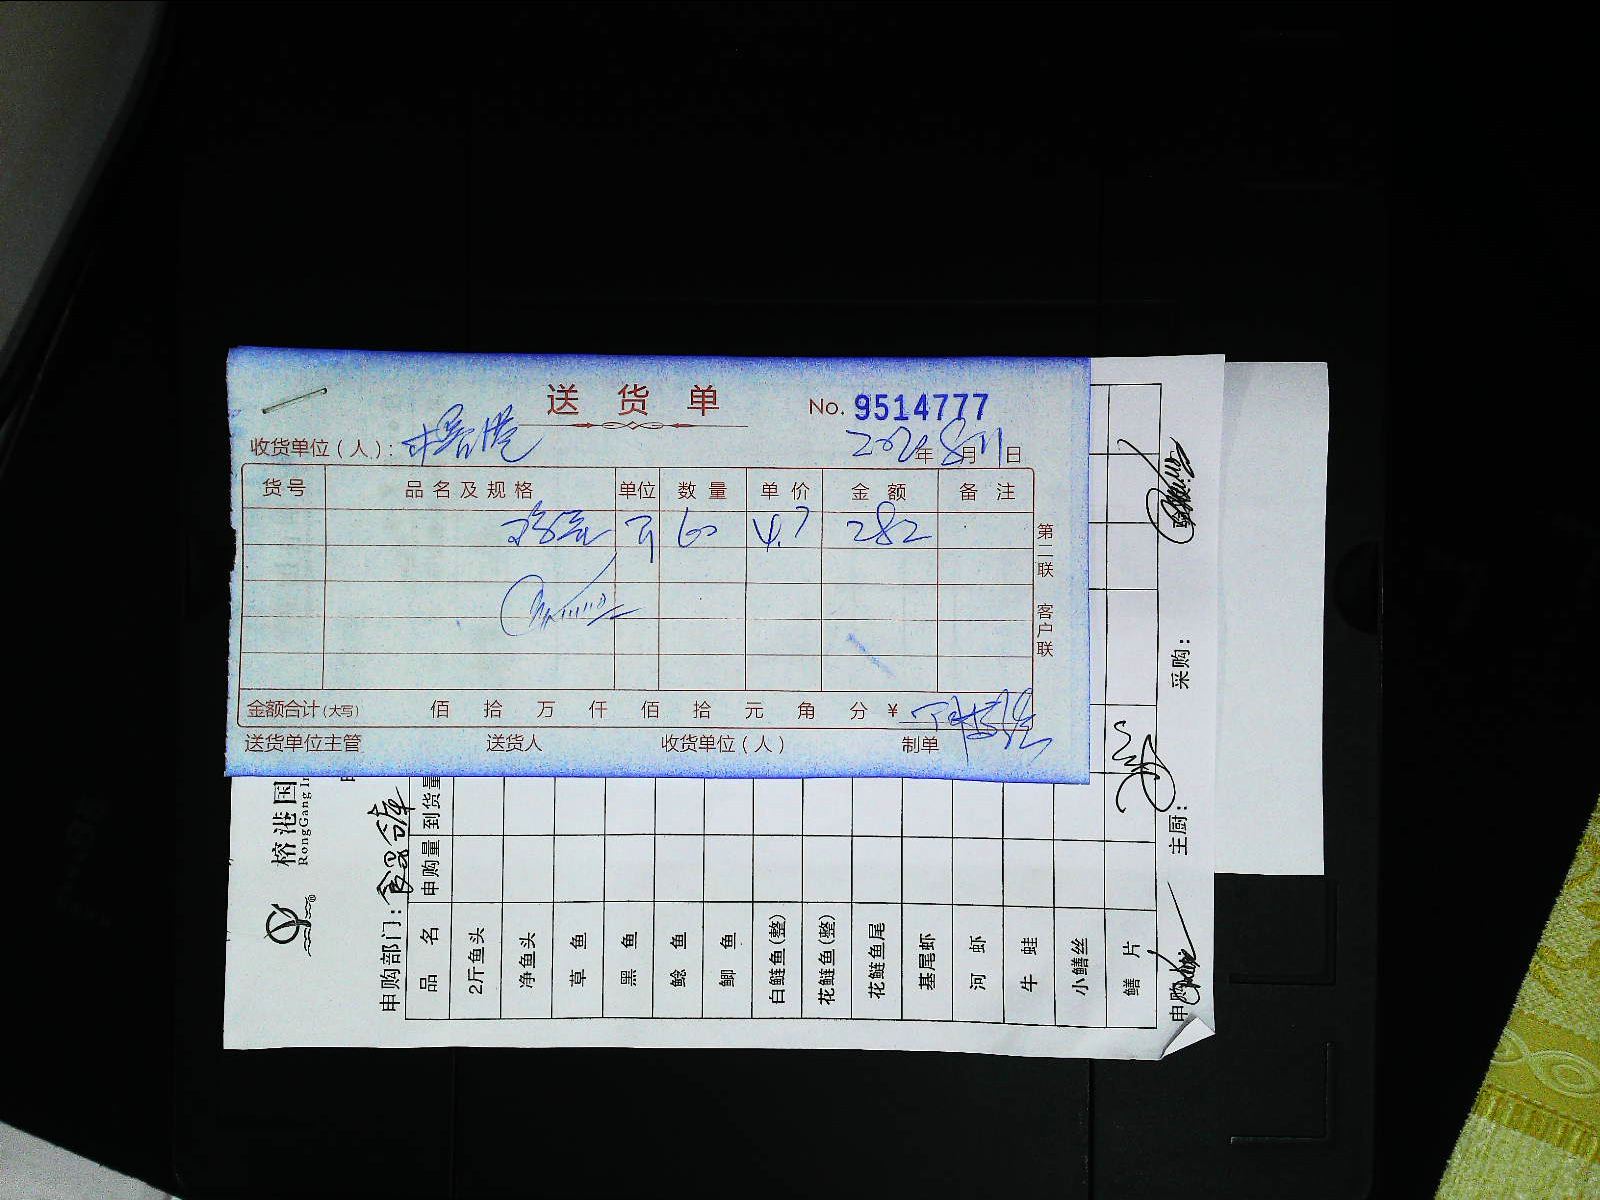 送货单
No. 9514777
收货单位（人）：榕港
2020年8月11日
货号 品名及规格 单位 数量 单价 金额 备注
斤 60 4.7 282
第二联 客户联
金额合计(大写) 佰 拾 万 仟 佰 拾 元 角 分 ¥
送货单位主管 送货人 收货单位（人） 制单
榕港国
RongGang In
申购部门：
品名 申购量 到货量
2斤鱼头
净鱼头
草鱼
黑鱼
鲶鱼
鲫鱼
白鲢鱼(整)
花鲢鱼(整)
花鲢鱼尾
基尾虾
河虾
牛蛙
小鳝丝
鳝片
申购 主厨： 采购：